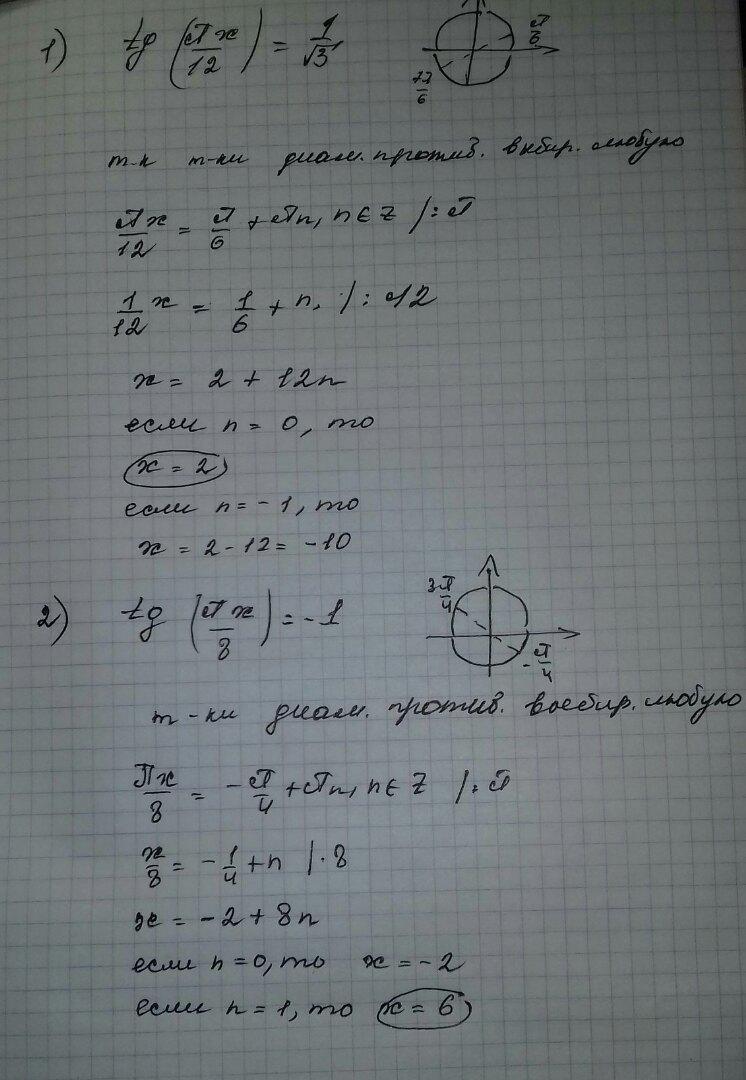 1) tg (πx/12) = 1/√3
π/6
7π/6
т-к т-ки диам. против. выбир. любую
πx/12 = π/6 + πn, n ∈ Z /: π
1/12 x = 1/6 + n, /: 12
x = 2 + 12n
если n = 0, то
x = 2
если n = -1, то
x = 2 - 12 = -10
2) tg (πx/8) = -1
3π/4
-π/4
т-ки диам. против. выбир. любую
Πx/8 = -π/4 + πn, n ∈ Z /: π
x/8 = -1/4 + n /·8
x = -2 + 8n
если n = 0, то x = -2
если n = 1, то x = 6